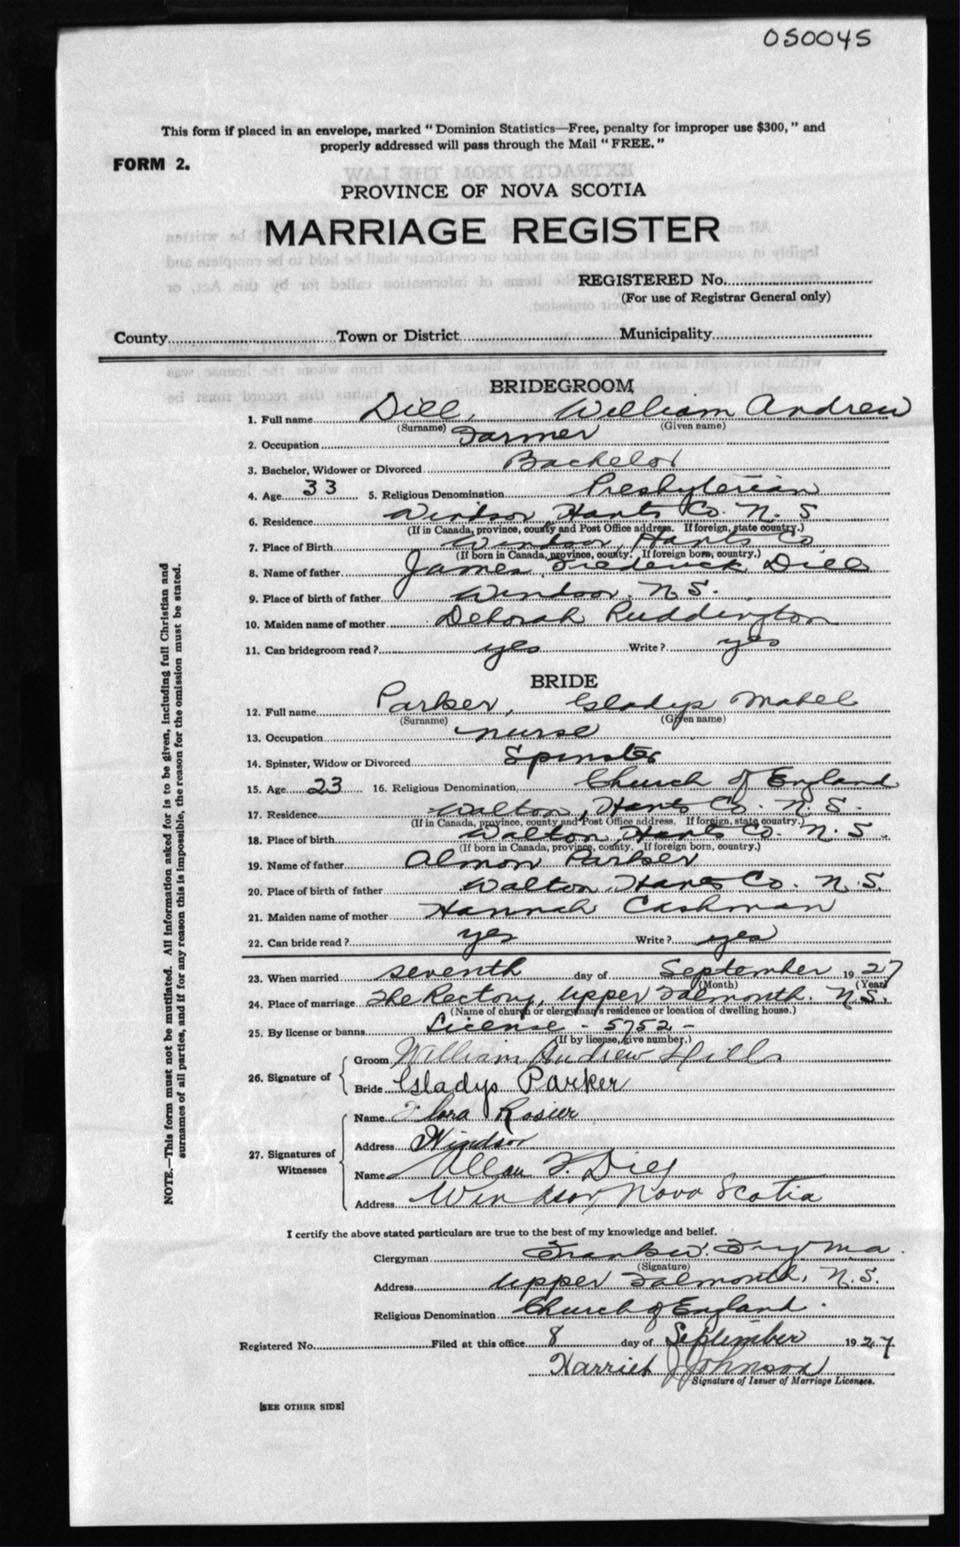 050045
This form if placed in an envelope, marked "Dominion Statistics—Free, penalty for improper use $300," and
properly addressed will pass through the Mail "FREE."
FORM 2.
PROVINCE OF NOVA SCOTIA
MARRIAGE REGISTER
REGISTERED No.
(For use of Registrar General only)
County Town or District Municipality
BRIDEGROOM
1. Full name Dill, William Andrew
(Surname) (Given name)
2. Occupation Farmer
3. Bachelor, Widower or Divorced Bachelor
4. Age 33 5. Religious Denomination Presbyterian
6. Residence Windsor, Hants Co. N. S
(If in Canada, province, county and Post Office address. If foreign, state country.)
7. Place of Birth Windsor, Hants Co
(If born in Canada, province, county. If foreign born, country.)
8. Name of father James Frederick Dill
9. Place of birth of father Windsor, N. S.
10. Maiden name of mother Deborah Ruddington
11. Can bridegroom read? yes Write? yes
BRIDE
12. Full name Parker, Gladys Mabel
(Surname) (Given name)
13. Occupation nurse
14. Spinster, Widow or Divorced Spinster
15. Age 23 16. Religious Denomination, Church of England
17. Residence Walton, Hants Co. N. S.
(If in Canada, province, county and Post Office address. If foreign, state country.)
18. Place of birth Walton Hants Co. N. S.
(If born in Canada, province, county. If foreign born, country.)
19. Name of father Almon Parker
20. Place of birth of father Walton, Hants Co. N. S.
21. Maiden name of mother Hannah Cashman
22. Can bride read? yes Write? yes
23. When married seventh day of September 1927
(Month) (Year)
24. Place of marriage The Rectory, Upper Falmouth. N.S.
(Name of church or clergyman's residence or location of dwelling house.)
25. By license or banns License - 5752 -
(If by license, give number.)
26. Signature of Groom William Andrew Dill
Bride Gladys Parker
27. Signatures of Witnesses Name Flora Rosier
Address Windsor
Name Allan F. Dill
Address Windsor, Nova Scotia
I certify the above stated particulars are true to the best of my knowledge and belief.
Clergyman M.A.
(Signature)
Address Upper Falmouth, N.S.
Religious Denomination Church of England.
Registered No. Filed at this office 8 day of September 1927
Harriet J Johnson
Signature of Issuer of Marriage Licenses.
[SEE OTHER SIDE]
NOTE.—This form must not be mutilated. All information asked for is to be given, including full Christian and
surnames of all parties, and if for any reason this is impossible, the reason for the omission must be stated.